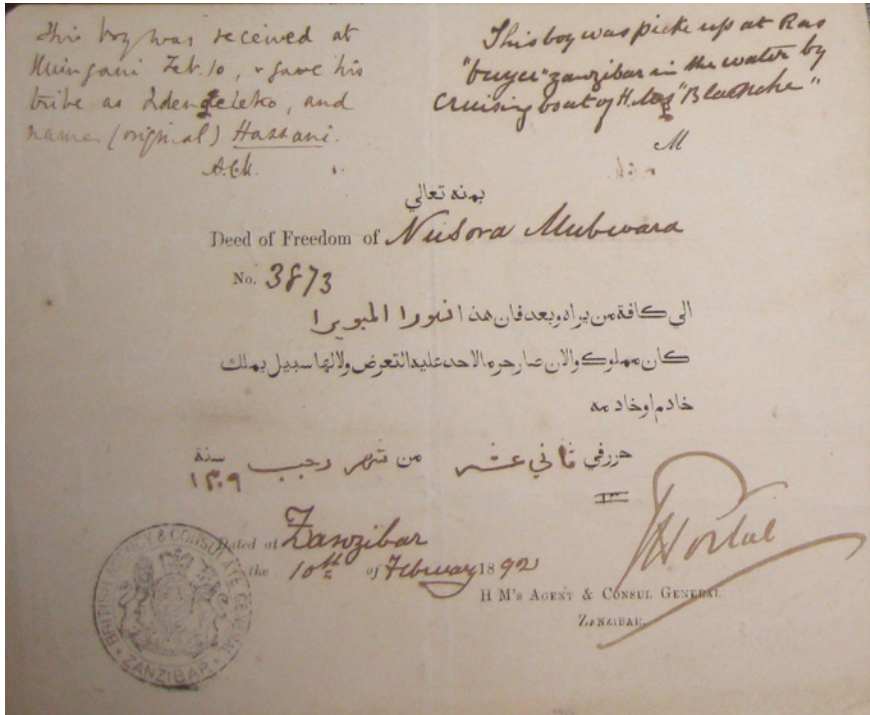 This boy was received at
Mwingani Feb. 10, & gave his
tribe as Idengeleko, and
name (original) Hassani.
A.C.M.
This boy was picke up at Ras
"buyu" zanzibar in the water by
cruising boat of H.M.S "Blanche"
M
بمنه تعالي
Deed of Freedom of Nusora Mubwara
No. 3873
الي كافة من يراه وبعد فان هذا انورا المبويرا
كان مملوك والان صار حر ما لاحد عليه التعرض ولا لها سبيل بملك
خادم او خادمه
حرر في ثاني عشر من شهر رجب سنة
١٣٠٩
Dated at Zanzibar
the 10th of February 1892
H M's AGENT & CONSUL GENERAL
ZANZIBAR.
BRITISH AGENCY & CONSULATE GENERAL
ZANZIBAR